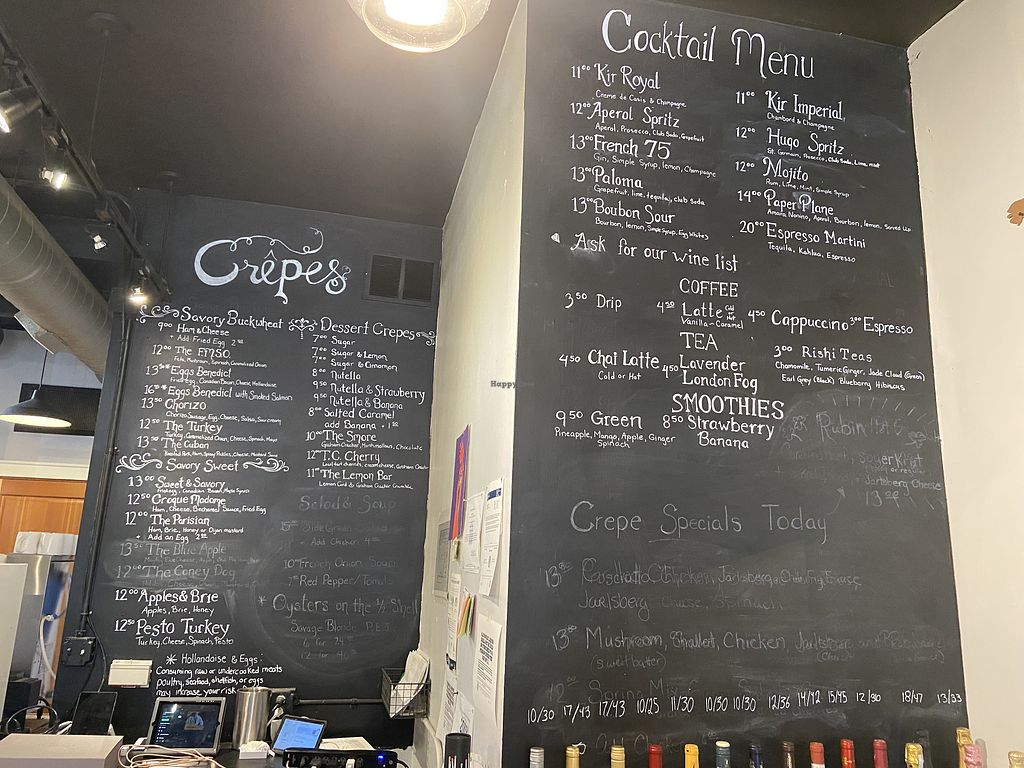 Crêpes
Savory Buckwheat
9⁰⁰ Ham & Cheese
+ Add Fried Egg 2⁵⁰
12⁰⁰ The FM7SO
Feta, Mushroom, Spinach, Caramelized Onion
13⁵⁰ * Eggs Benedict
Fried Egg, Canadian Bacon, Cheese, Hollandaise
16⁵⁰ * Eggs Benedict with Smoked Salmon
13⁵⁰ Chorizo
Chorizo Sausage, Egg, Cheese, Salsa, Sour cream
12⁵⁰ The Turkey
Turkey, Caramelized Onion, Cheese, Spinach, Mayo
13⁵⁰ The Cuban
Roasted Pork, Ham, Spicy Pickles, Cheese, Mustard Sauce
Savory Sweet
13⁰⁰ Sweet & Savory
Fried egg, Canadian Bacon, Maple Syrup
12⁵⁰ Croque Madame
Ham, Cheese, Bechamel Sauce, Fried Egg
12⁰⁰ The Parisian
Ham, Brie, Honey or Dijon mustard
+ Add an Egg 2⁵⁰
13⁵⁰ The Blue Apple
12⁰⁰ The Coney Dog
12⁰⁰ Apples & Brie
Apples, Brie, Honey
12⁵⁰ Pesto Turkey
Turkey, Cheese, Spinach, Pesto
* Hollandaise & Eggs:
Consuming raw or undercooked meats
poultry, seafood, shellfish, or eggs
may increase your risk
Dessert Crepes
7⁰⁰ Sugar
7⁵⁰ Sugar & Lemon
7⁵⁰ Sugar & Cinnamon
8⁰⁰ Nutella
9⁵⁰ Nutella & Strawberry
9⁵⁰ Nutella & Banana
8⁰⁰ Salted Caramel
add Banana + 1⁵⁰
10⁰⁰ The Smore
Graham Cracker, Marshmallows, Chocolate
12⁰⁰ T.C. Cherry
Local tart cherries, cream cheese, Graham Cracker
11⁰⁰ The Lemon Bar
Lemon Curd & Graham Cracker Crumble
Salad & Soup
Side Green Salad
+ Add Chicken
10⁰⁰ French Onion Soup
7⁵⁰ Red Pepper/Tomato
* Oysters on the ½ Shell
Savage Blonde P.E.I.
6 for 24
12 for 40
Cocktail Menu
11⁰⁰ Kir Royal
Creme de Casis & Champagne
12⁰⁰ Aperol Spritz
Aperol, Prosecco, Club Soda, Grapefruit
13⁰⁰ French 75
Gin, Simple Syrup, lemon, Champagne
13⁰⁰ Paloma
Grapefruit, lime, tequila, club Soda
13⁰⁰ Boubon Sour
Bourbon, lemon, Simple Syrup, Egg Whites
11⁰⁰ Kir Imperial
Chambord & Champagne
12⁰⁰ Hugo Spritz
St. Germain, Prosecco, Club Soda, Lime, mint
12⁰⁰ Mojito
Rum, Lime, Mint, Simple Syrup
14⁰⁰ Paper Plane
Amaro Nonino, Aperol, Bourbon, lemon, Served Up
20⁰⁰ Espresso Martini
Tequila, Kahlua, Espresso
Ask for our wine list
COFFEE
3⁵⁰ Drip
4⁵⁰ Latte Cold or Hot
Vanilla - Caramel
4⁵⁰ Cappuccino
3⁰⁰ Espresso
TEA
4⁵⁰ Chai Latte
Cold or Hot
4⁵⁰ Lavender
London Fog
3⁰⁰ Rishi Teas
Chamomile, Tumeric Ginger, Jade Cloud (Green)
Earl Grey (Black) Blueberry Hibiscus
SMOOTHIES
9⁵⁰ Green
Pineapple, Mango, Apple, Ginger
Spinach
8⁵⁰ Strawberry
Banana
Rubin
Jarlsberg Cheese
13⁵⁰
Crepe Specials Today
13⁵⁰ Chicken, Jarlsberg
Jarlsberg Cheese, Spinach
13⁵⁰ Mushroom, Shallot, Chicken, Jarlsberg
10/30 17/43 17/43 10/25 11/30 10/30 10/30 12/36 14/42 15/45 12/30 18/47 13/33